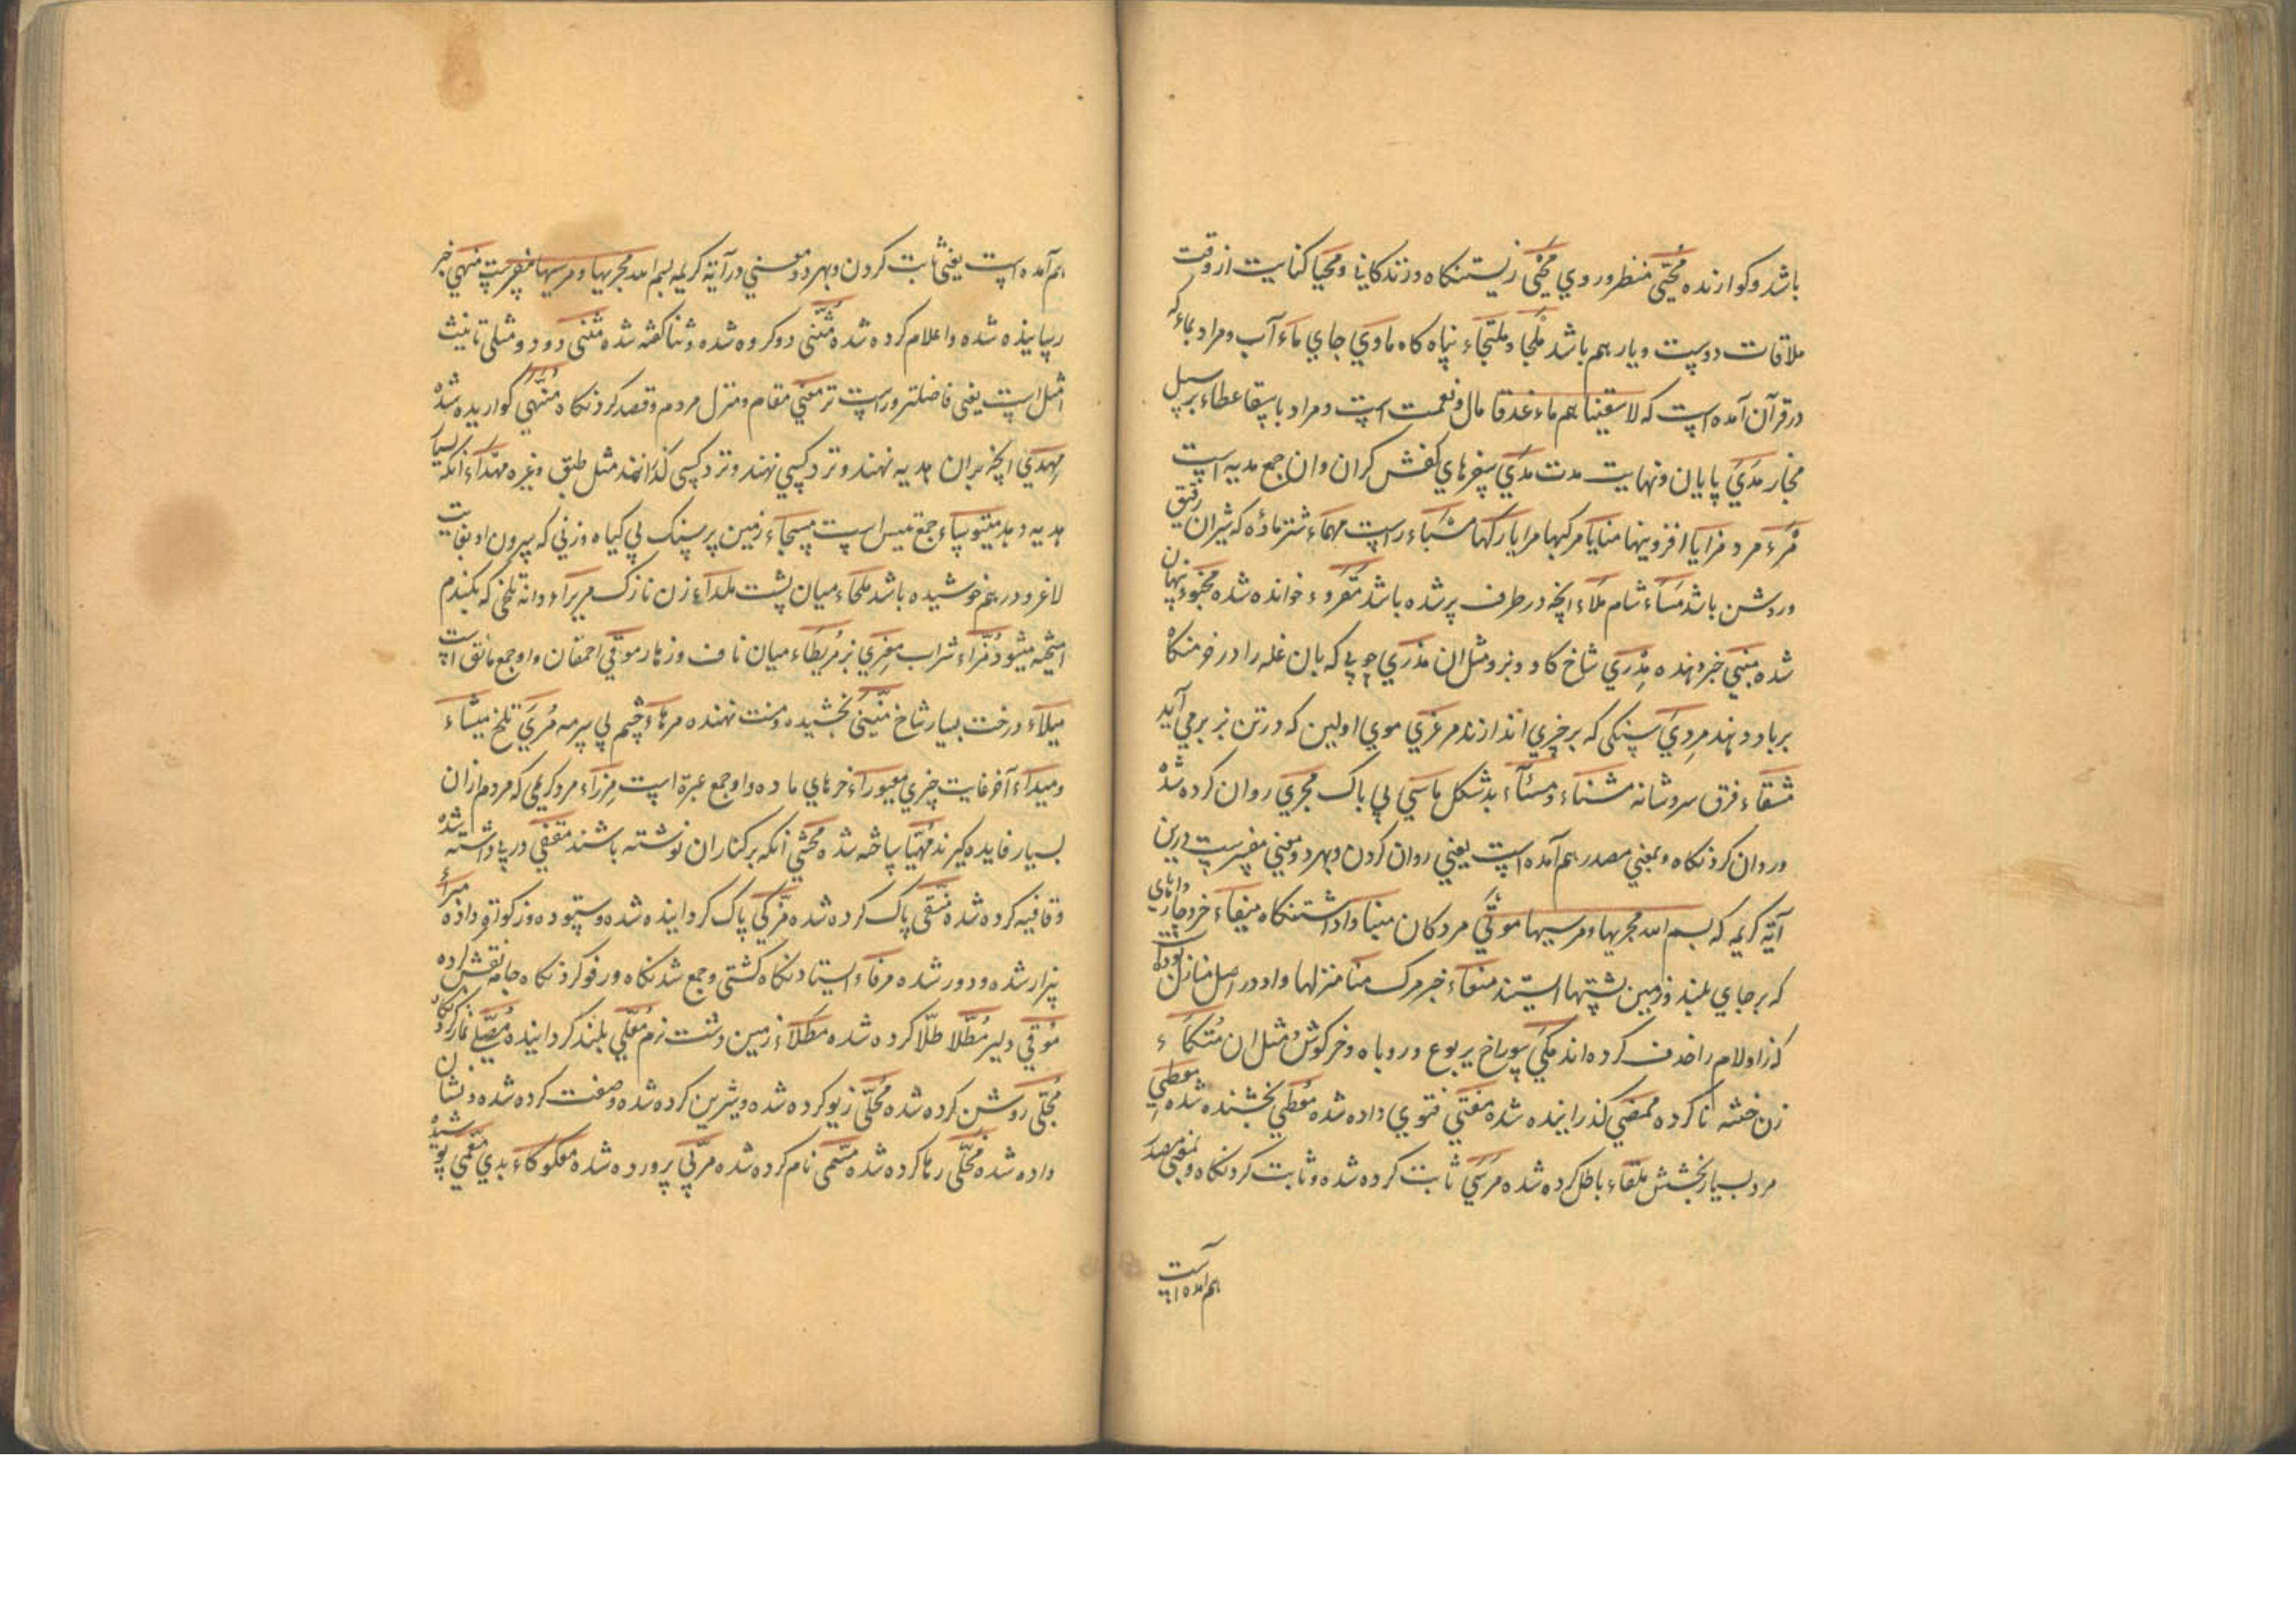 باشد و کوارنده مُحَیّی منظر و روی مَحْیی زیستنکاه و زندکانی و محیا کنایت از وقت
ملاقات دوست و یار هم باشد مَلْجا و ملتجاء پناه کاه ماوی جای ماء آب و مراد بماء که
در قرآن آمده است که لاسقیناهم ماء غدقا مال و نعمت است و مراد باسقا عطاء بر سبیل
مجاز مَدَی پایان و نهایت مدت مدی
مَرْء مرد مزایا افزونیها منایا مرکها
ور دشن باشد مَسَاء شام مَلَاء انچه در طرف پر شده باشد مَقْرُوء خوانده شده مخبوء پنهان
شده مُنبی خبر دهنده مِدْری شاخ کاو و بز و مثل ان مذری چوبی که بان غله را در خرمنکاه
برباد دهند مِردی سنکی که بر چیزی اندازند مرعزی موی اولین که در تن بز برمی آید
مشقاء فرق سر و شانه مشناء و مسئاء بدشکل ماسی بی باک مجری روان کرده شده
و روان کردنکاه و بمعنی مصدر هم آمده است یعنی روان کردن و بهر دو معنی مفسرست درین
آیة کریمه که بسم الله مجریها و مرسیها موتی مردکان مینا
که بر جای بلند و زمین پشتها ایستند منعاء خبر مرک منا منزلها و او در اصل منازل بوده
که زا و لام را حذف کرده اند مکی سوراخ یربوع و روباه و خرکوش و مثل ان مُتکاء
زن ختنه ناکرده ممضی کذرانیده شده مفتی فتوی داده شده مُعطی بخشنده شده معطی
مرد بسیار بخشش ملقاء باطل کرده شده مرسی ثابت کرده شده و ثابت کردنکاه و بمعنی مصدر
هم آمده است
هم آمده است یعنی ثابت کردن و بهر دو معنی در آیة کریمه بسم الله مجریها و مرسیها مفسرست منهی خبر
رسانیده شده و اعلام کرده شده مُثَنّی دو کروه شده و ثنا کفته شده مثنی دو دو مثلی تانیث
امثل است یعنی فاضلتر و راست تر مغنی مقام و منزل مردم و قصد کردنکاه مُنَهّی کوارنده شده
مِهدی انچه بران هدیه نهند و نزد کسی نهند و نزد کسی کذرانند مثل طبق و غیره مهداء انکه بسیار
هدیه دهد میتو سباء جمع میس است مسجاء زمین پر سنک بی کیاه و زنی که
لاغر و درهم خوشیده باشد ملحاء میان پشت ملداء زن نازک مریراء دانه تلخی که بکندم
امیخته میشود مُزّاء شراب مِعزی بز مُریطاء میان ناف و زهار موقی احمقان و او جمع مائق است
میلاء درخت بسیار شاخ منّینی بخشیده و منت نهنده مرهاء چشم بی سرمه مُرّی تلخ میشاء
و میداء آخر غایت چیزی معیوراء خرهای ماده و او جمع عیرة است مِرزاء مرد کریمی که مردم ازان
بسیار فایده کیرند مُهیّا ساخته شده مُحشّی انکه بر کناران نوشته باشند مقفی در پی داشته شده
و قافیه کرده شده منقی پاک کرده شده مزکی پاک کردانیده شده و ستوده و زکوة داده مبرّا
بیزار شده و دور شده مرفاء ایستادنکاه کشتی و جمع شدنکاه و رفو کردنکاه جامه
مُوقی دلیر مُطَلّا طلا کرده شده مطلاء زمین و دشت نرم مُعلّی بلند کردانیده مُصلّی نماز کردنکاه
مُجلّی روشن کرده شده مُحلّی زیور کرده شده و شیرین کرده شده و صفت کرده شده و نشان
داده شده مُخلّی رها کرده شده مسمّی نام کرده شده مربّی پرورده شده معکوکاء بدی مغمی پوشیده